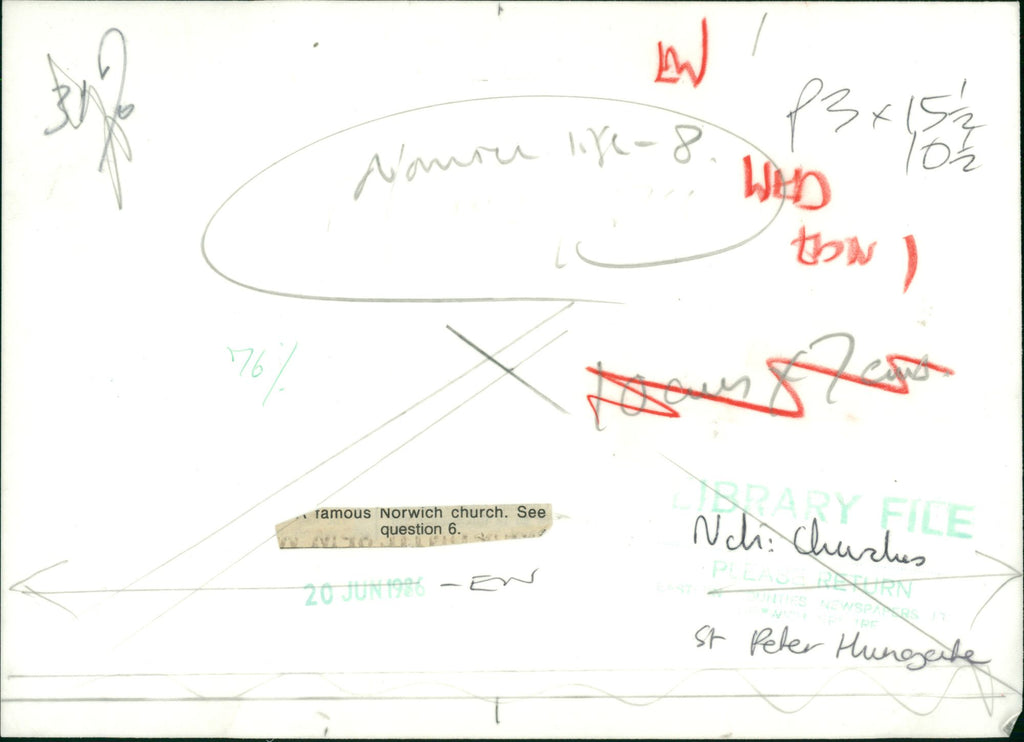 EW
P3 x 15½
10½
Norwich life - 8.
WHD
EDN 1
76%
10 cms x 7 cms.
LIBRARY FILE
famous Norwich church. See
question 6.
Nch: Churches
PLEASE RETURN
20 JUN 1986 - EW
EAST COUNTIES NEWSPAPERS LT
St Peter Hungate